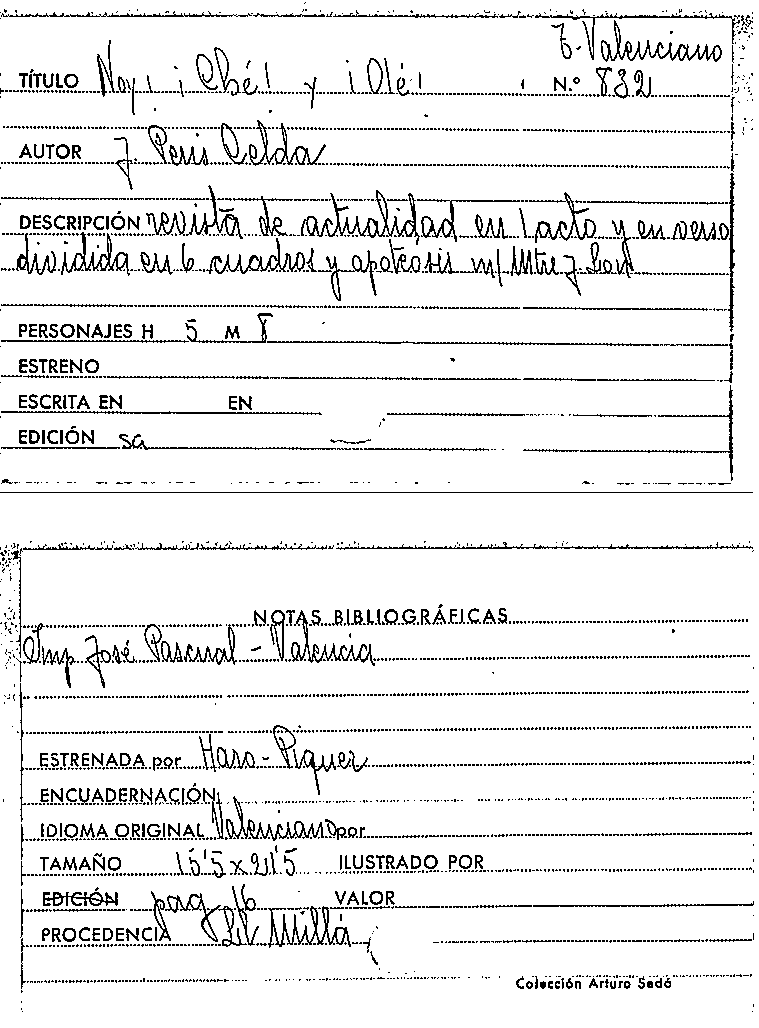 T-Valenciano
TÍTULO Noy! ¡Ché! y ¡Olé! N.º 832
AUTOR J. Peris Celda
DESCRIPCIÓN revista de actualidad en 1 acto y en verso
dividida en 6 cuadros y apoteosis m/ Mtre J.
PERSONAJES H 5 M 8
ESTRENO
ESCRITA EN EN
EDICIÓN sa
NOTAS BIBLIOGRÁFICAS
Imp José Pascual - Valencia
ESTRENADA por Haro - Piquer
ENCUADERNACIÓN
IDIOMA ORIGINAL Valenciano por
TAMAÑO 15'5 x 21'5 ILUSTRADO POR
EDICIÓN pag 16 VALOR
PROCEDENCIA Lib Millá
Colección Arturo Sedó